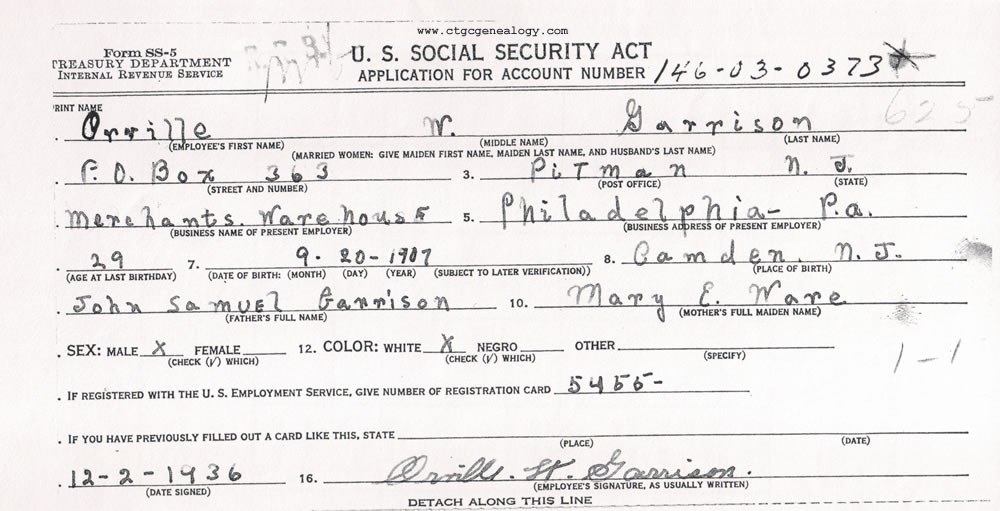 www.ctgcgenealogy.com
Form SS-5
TREASURY DEPARTMENT
INTERNAL REVENUE SERVICE
U. S. SOCIAL SECURITY ACT
APPLICATION FOR ACCOUNT NUMBER 146-03-0373
625
PRINT NAME
Orville W. Garrison
(EMPLOYEE'S FIRST NAME) (MIDDLE NAME) (LAST NAME)
(MARRIED WOMEN: GIVE MAIDEN FIRST NAME, MAIDEN LAST NAME, AND HUSBAND'S LAST NAME)
P.O. Box 363 3. Pitman N.J.
(STREET AND NUMBER) (POST OFFICE) (STATE)
Merchants. Warehouse 5. Philadelphia- Pa.
(BUSINESS NAME OF PRESENT EMPLOYER) (BUSINESS ADDRESS OF PRESENT EMPLOYER)
29 7. 9-20-1907 8. Camden. N.J.
(AGE AT LAST BIRTHDAY) (DATE OF BIRTH: (MONTH) (DAY) (YEAR) (SUBJECT TO LATER VERIFICATION)) (PLACE OF BIRTH)
John Samuel Garrison 10. Mary E. Ware
(FATHER'S FULL NAME) (MOTHER'S FULL MAIDEN NAME)
. SEX: MALE X FEMALE 12. COLOR: WHITE X NEGRO OTHER
(CHECK (√) WHICH) (CHECK (√) WHICH) (SPECIFY)
1-1
. IF REGISTERED WITH THE U. S. EMPLOYMENT SERVICE, GIVE NUMBER OF REGISTRATION CARD 5455-
. IF YOU HAVE PREVIOUSLY FILLED OUT A CARD LIKE THIS, STATE
(PLACE) (DATE)
12-2-1936 16. Orville. W. Garrison.
(DATE SIGNED) (EMPLOYEE'S SIGNATURE, AS USUALLY WRITTEN)
DETACH ALONG THIS LINE